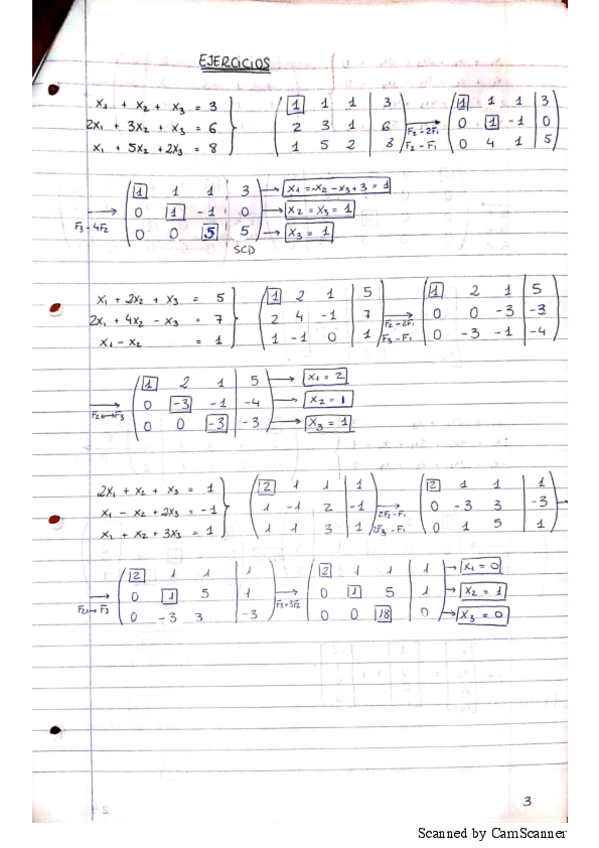 EJERCICIOS
x₁ + x₂ + x₃ = 3
2x₁ + 3x₂ + x₃ = 6
x₁ + 5x₂ + 2x₃ = 8
1 1 1 | 3
2 3 1 | 6
1 5 2 | 8
F₂ - 2F₁
F₂ - F₁
1 1 1 | 3
0 1 -1 | 0
0 4 1 | 5
F₃ - 4F₂
1 1 1 | 3
0 1 -1 | 0
0 0 5 | 5
SCD
x₁ = -x₂ - x₃ + 3 = 1
x₂ = x₃ = 1
x₃ = 1
x₁ + 2x₂ + x₃ = 5
2x₁ + 4x₂ - x₃ = 7
x₁ - x₂ = 1
1 2 1 | 5
2 4 -1 | 7
1 -1 0 | 1
F₂ - 2F₁
F₃ - F₁
1 2 1 | 5
0 0 -3 | -3
0 -3 -1 | -4
F₂ ↔ F₃
1 2 1 | 5
0 -3 -1 | -4
0 0 -3 | -3
x₁ = 2
x₂ = 1
x₃ = 1
2x₁ + x₂ + x₃ = 1
x₁ - x₂ + 2x₃ = -1
x₁ + x₂ + 3x₃ = 1
2 1 1 | 1
1 -1 2 | -1
1 1 3 | 1
2F₂ - F₁
2F₃ - F₁
2 1 1 | 1
0 -3 3 | -3
0 1 5 | 1
F₂ ↔ F₃
2 1 1 | 1
0 1 5 | 1
0 -3 3 | -3
F₃ + 3F₂
2 1 1 | 1
0 1 5 | 1
0 0 18 | 0
x₁ = 0
x₂ = 1
x₃ = 0
3
Scanned by CamScanner